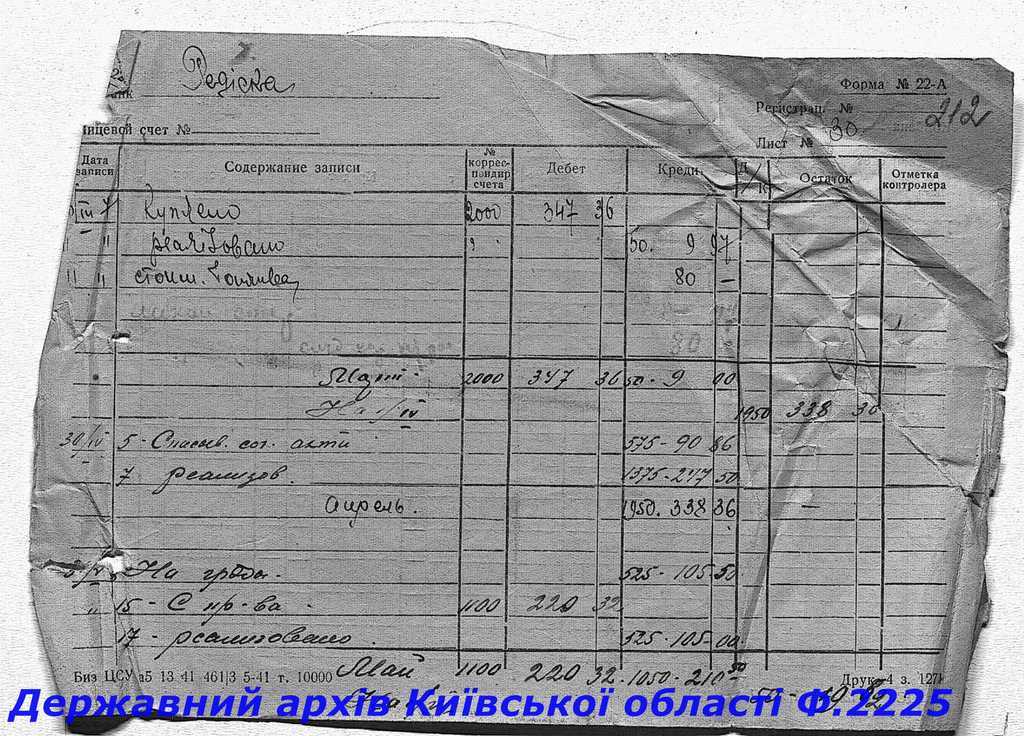 Редіска
Форма № 22-А
Регистрац. № 212
Лицевой счет №
Лист № 30
Дата записи
Содержание записи
№ корреспондир счета
Дебет
Кредит
Д/К
Остаток
Отметка контролера
/III 7 куплено 2000 347 36
" " реалізовано 50. 9 97
" " 80 —
80
Март 2000 347 36 50-9 00
На 1/IV 1950 338 36
30/IV 5- Списыв. сог. акта 575-90 86
7 реализов. 1375-247 50
Апрель. 1950. 338 36 —
/V На 525-105 50
" 15- С пр-ва 1100 220 32
17- реализовано 525-105 00
Май 1100 220 32 1050-210 50
Биз ЦСУ а5 13 41 461|3 5-41 т. 10000
Друк-4 з. 127
Державний архів Київської області Ф.2225